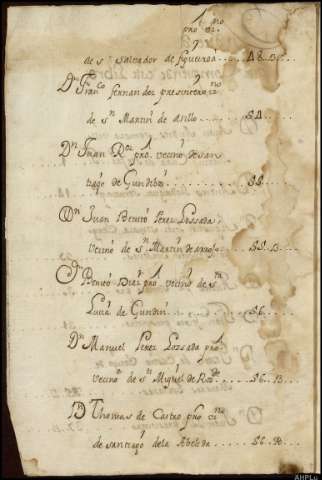 pro vz.no
de sn Salvador de figueiroá . . . . 48. B.
Dn Franco fernandez presvitero vzno
de sn Martin de asilo . . . . . . 54.
Dn Juan Rz pro. vecino de san
tiago de Gundibos . . . . . . . 55.
Dn Juan Benito Perez Lossada,
vecino de sn Martin de . . . . 55. B.
Dn Benito Diaz pro vecino de sta
Lucia de Gundin . . . . . . . 56.
Dn Manuel Perez Lossada pro
vecino de sn Miguel de Ro . . . 56. B.
D Thomas de Castro pro vzno
de santiago de la Abeleda . . . 56.
AHPLu